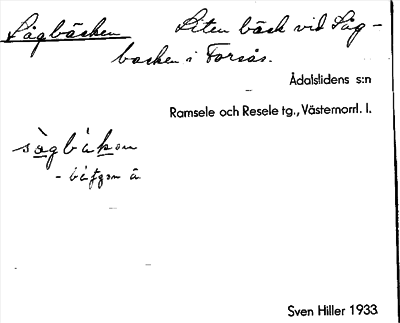 Sågbäcken Liten bäck vid Såg-
backen i Forsås.
Ådalslidens s:n
Ramsele och Resele tg., Västernorrl. l.
sågbäkən
Sven Hiller 1933